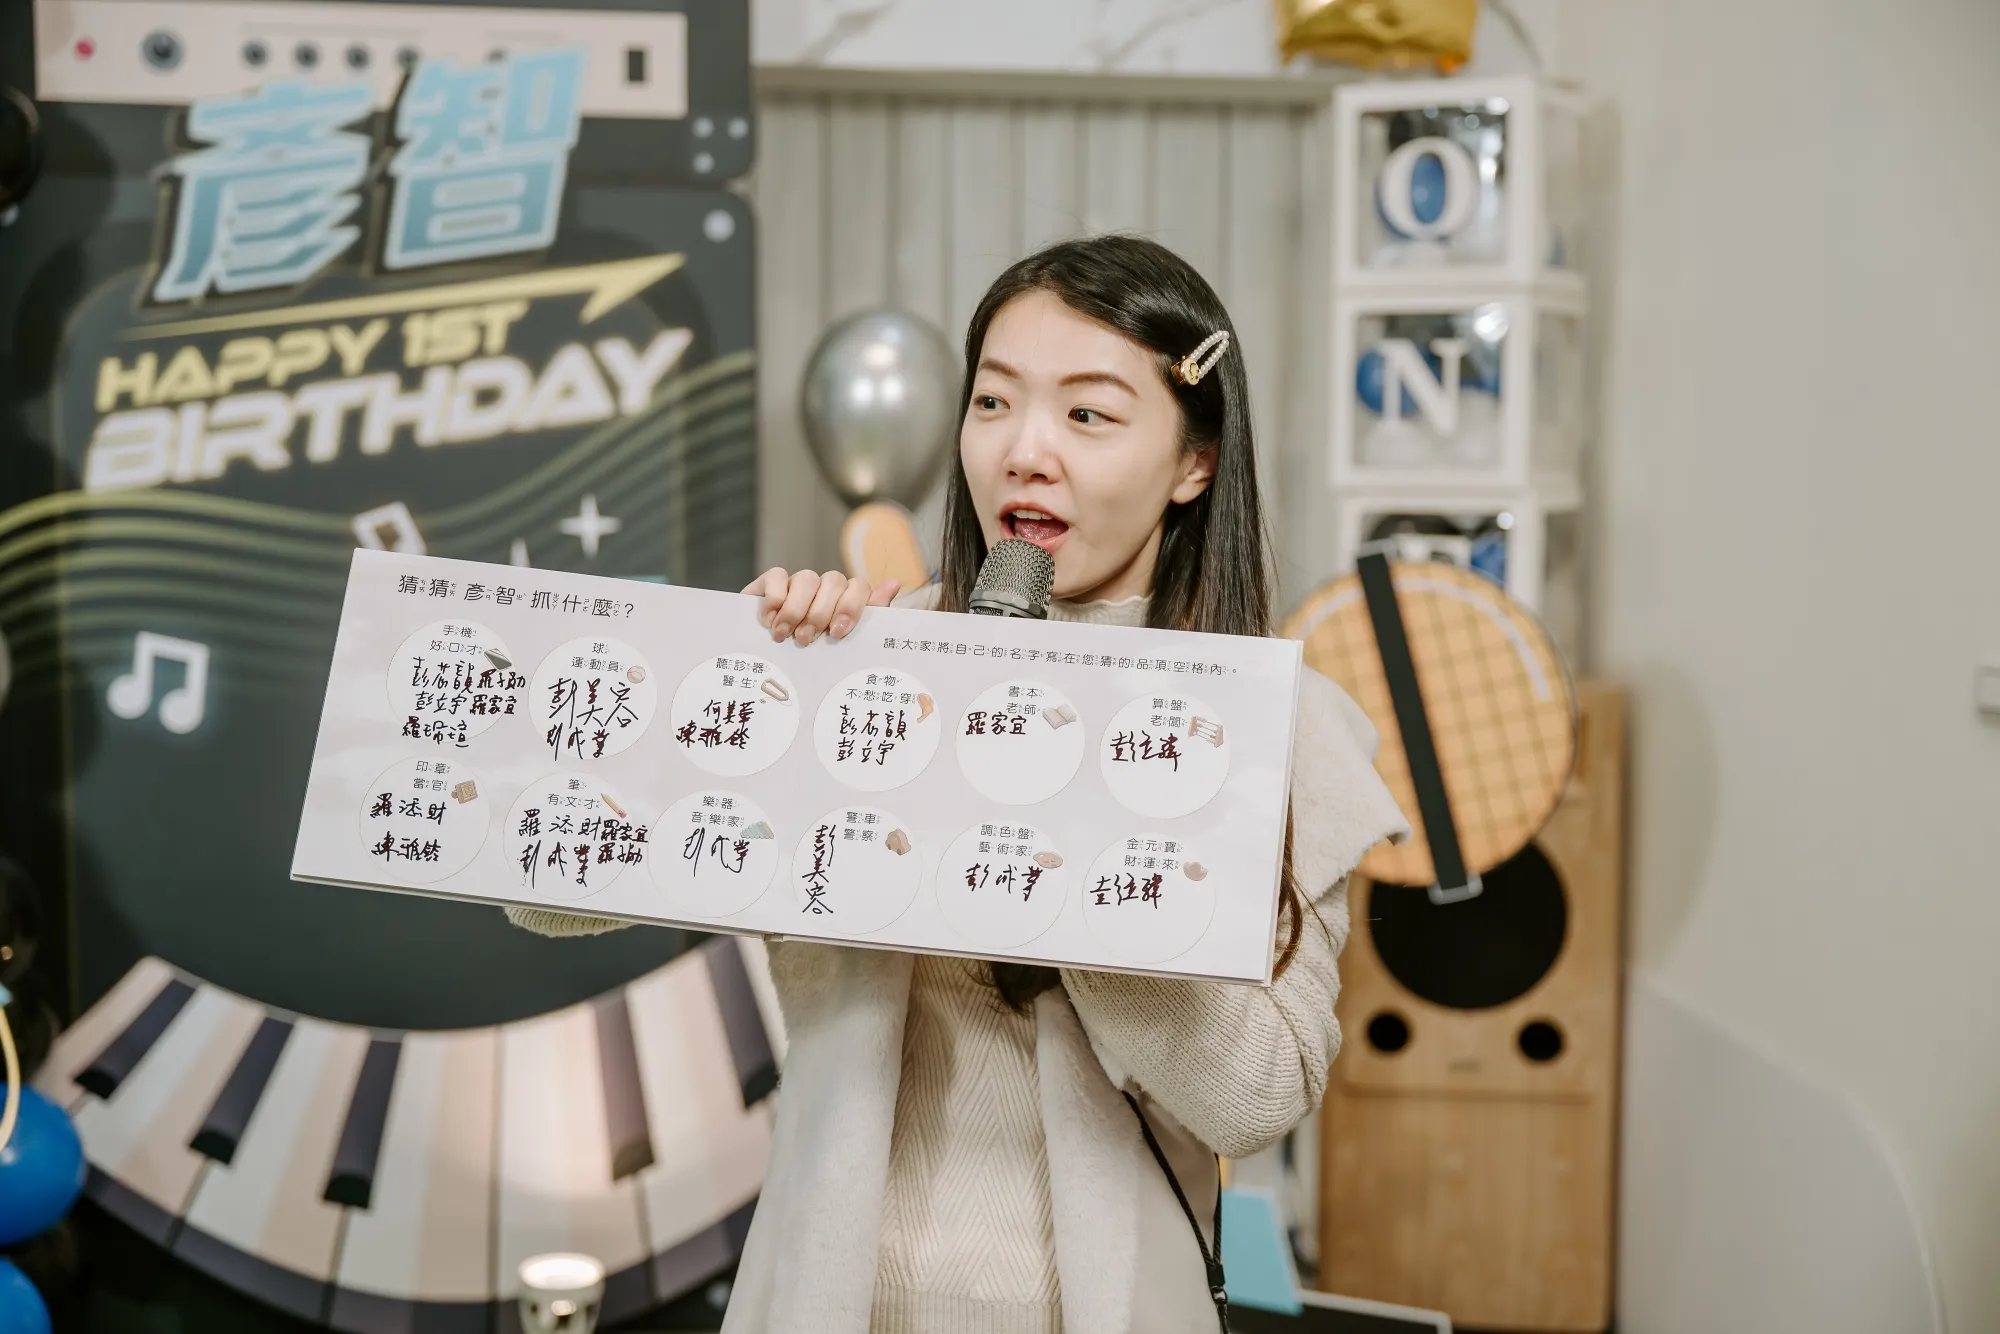 彥智
HAPPY 1ST
BIRTHDAY
O
N
E
猜猜彥智抓什麼?
請大家將自己的名字寫在您猜的品項空格內。
手機
好口才
彭立宇 羅家宜
球
運動員
彭美容
彭成業
聽診器
醫生
何美華
陳雅鈴
食物
不愁吃穿
彭立宇
書本
老師
羅家宜
算盤
老闆
印章
當官
羅添財
陳雅鈴
筆
有文才
羅添財 羅家宜
彭成業
樂器
音樂家
彭成業
警車
警察
彭美容
調色盤
藝術家
彭成業
金元寶
財運來